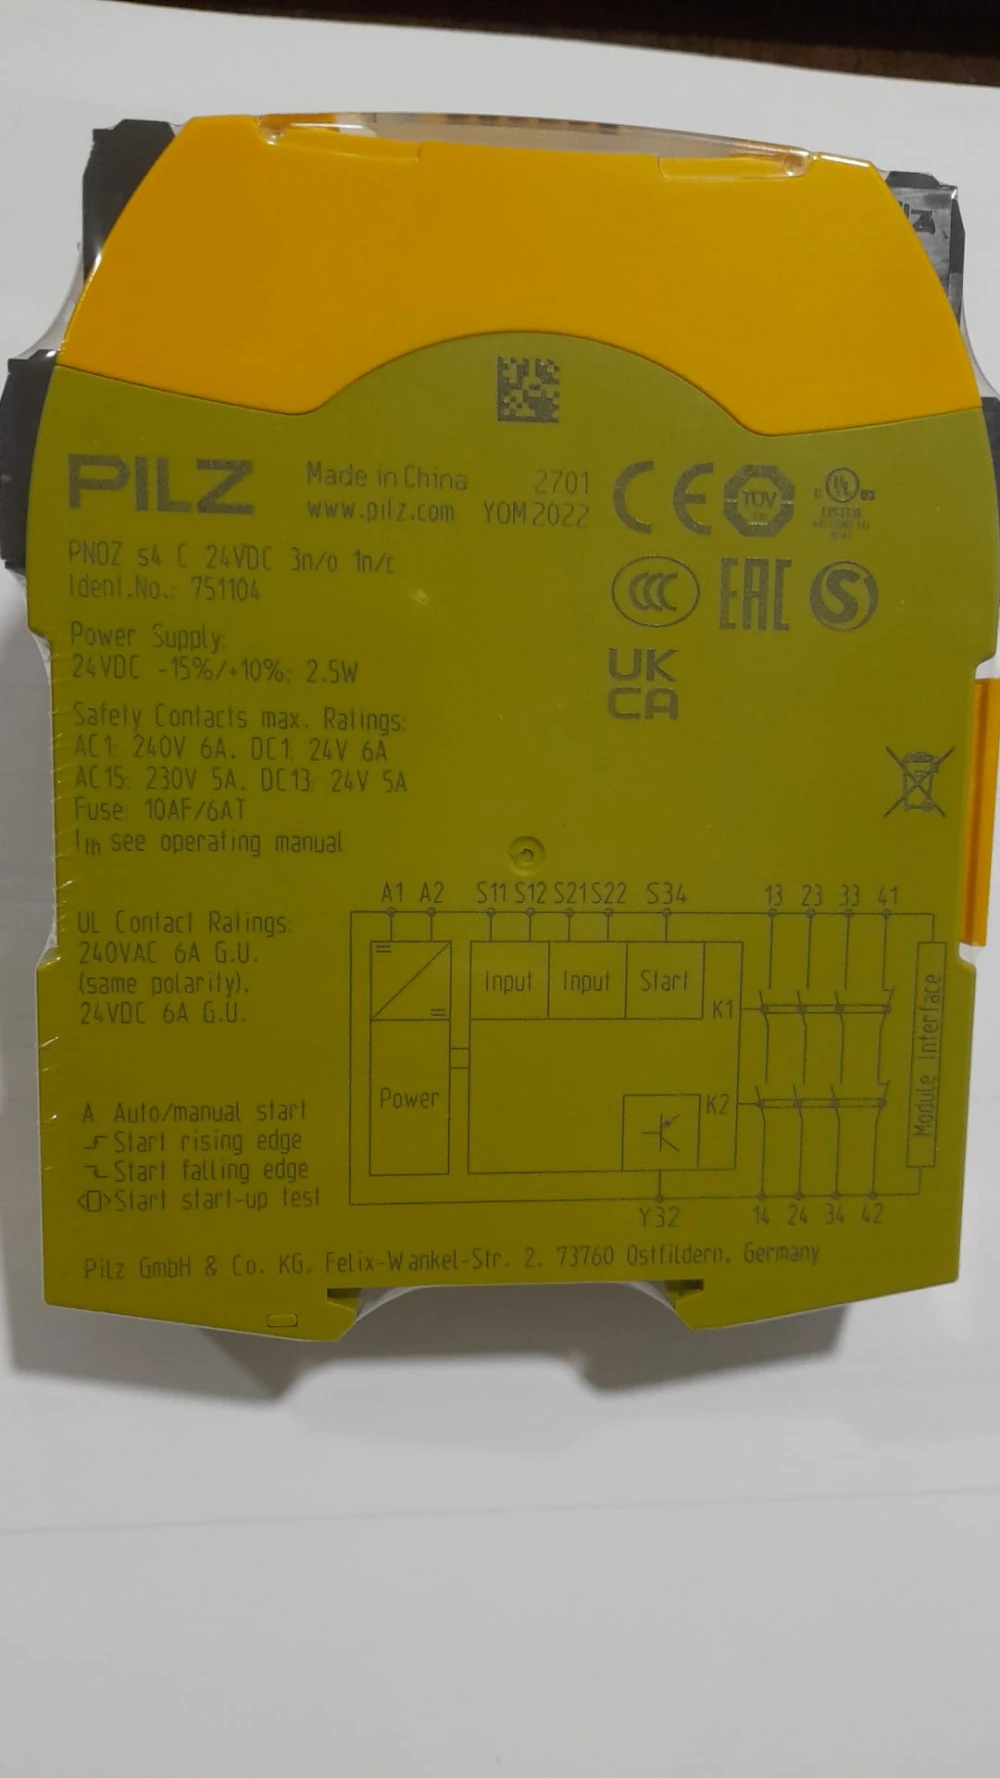 PILZ
Made in China 2701
www.pilz.com YOM 2022
CE
TÜV
UL
C US
LISTED
PNOZ s4 C 24VDC 3n/o 1n/c
Ident.No.: 751104
CCC
EAC
S
UK
CA
Power Supply:
24VDC -15%/+10%; 2.5W
Safety Contacts max. Ratings:
AC1: 240V 6A, DC1: 24V 6A
AC15: 230V 5A, DC13: 24V 5A
Fuse: 10AF/6AT
Ith see operating manual
UL Contact Ratings:
240VAC 6A G.U.
(same polarity),
24VDC 6A G.U.
A Auto/manual start
Start rising edge
Start falling edge
Start start-up test
A1 A2 S11 S12 S21 S22 S34 13 23 33 41
Input Input Start
K1
Power
K2
Module Interface
Y32 14 24 34 42
Pilz GmbH & Co. KG, Felix-Wankel-Str. 2, 73760 Ostfildern, Germany